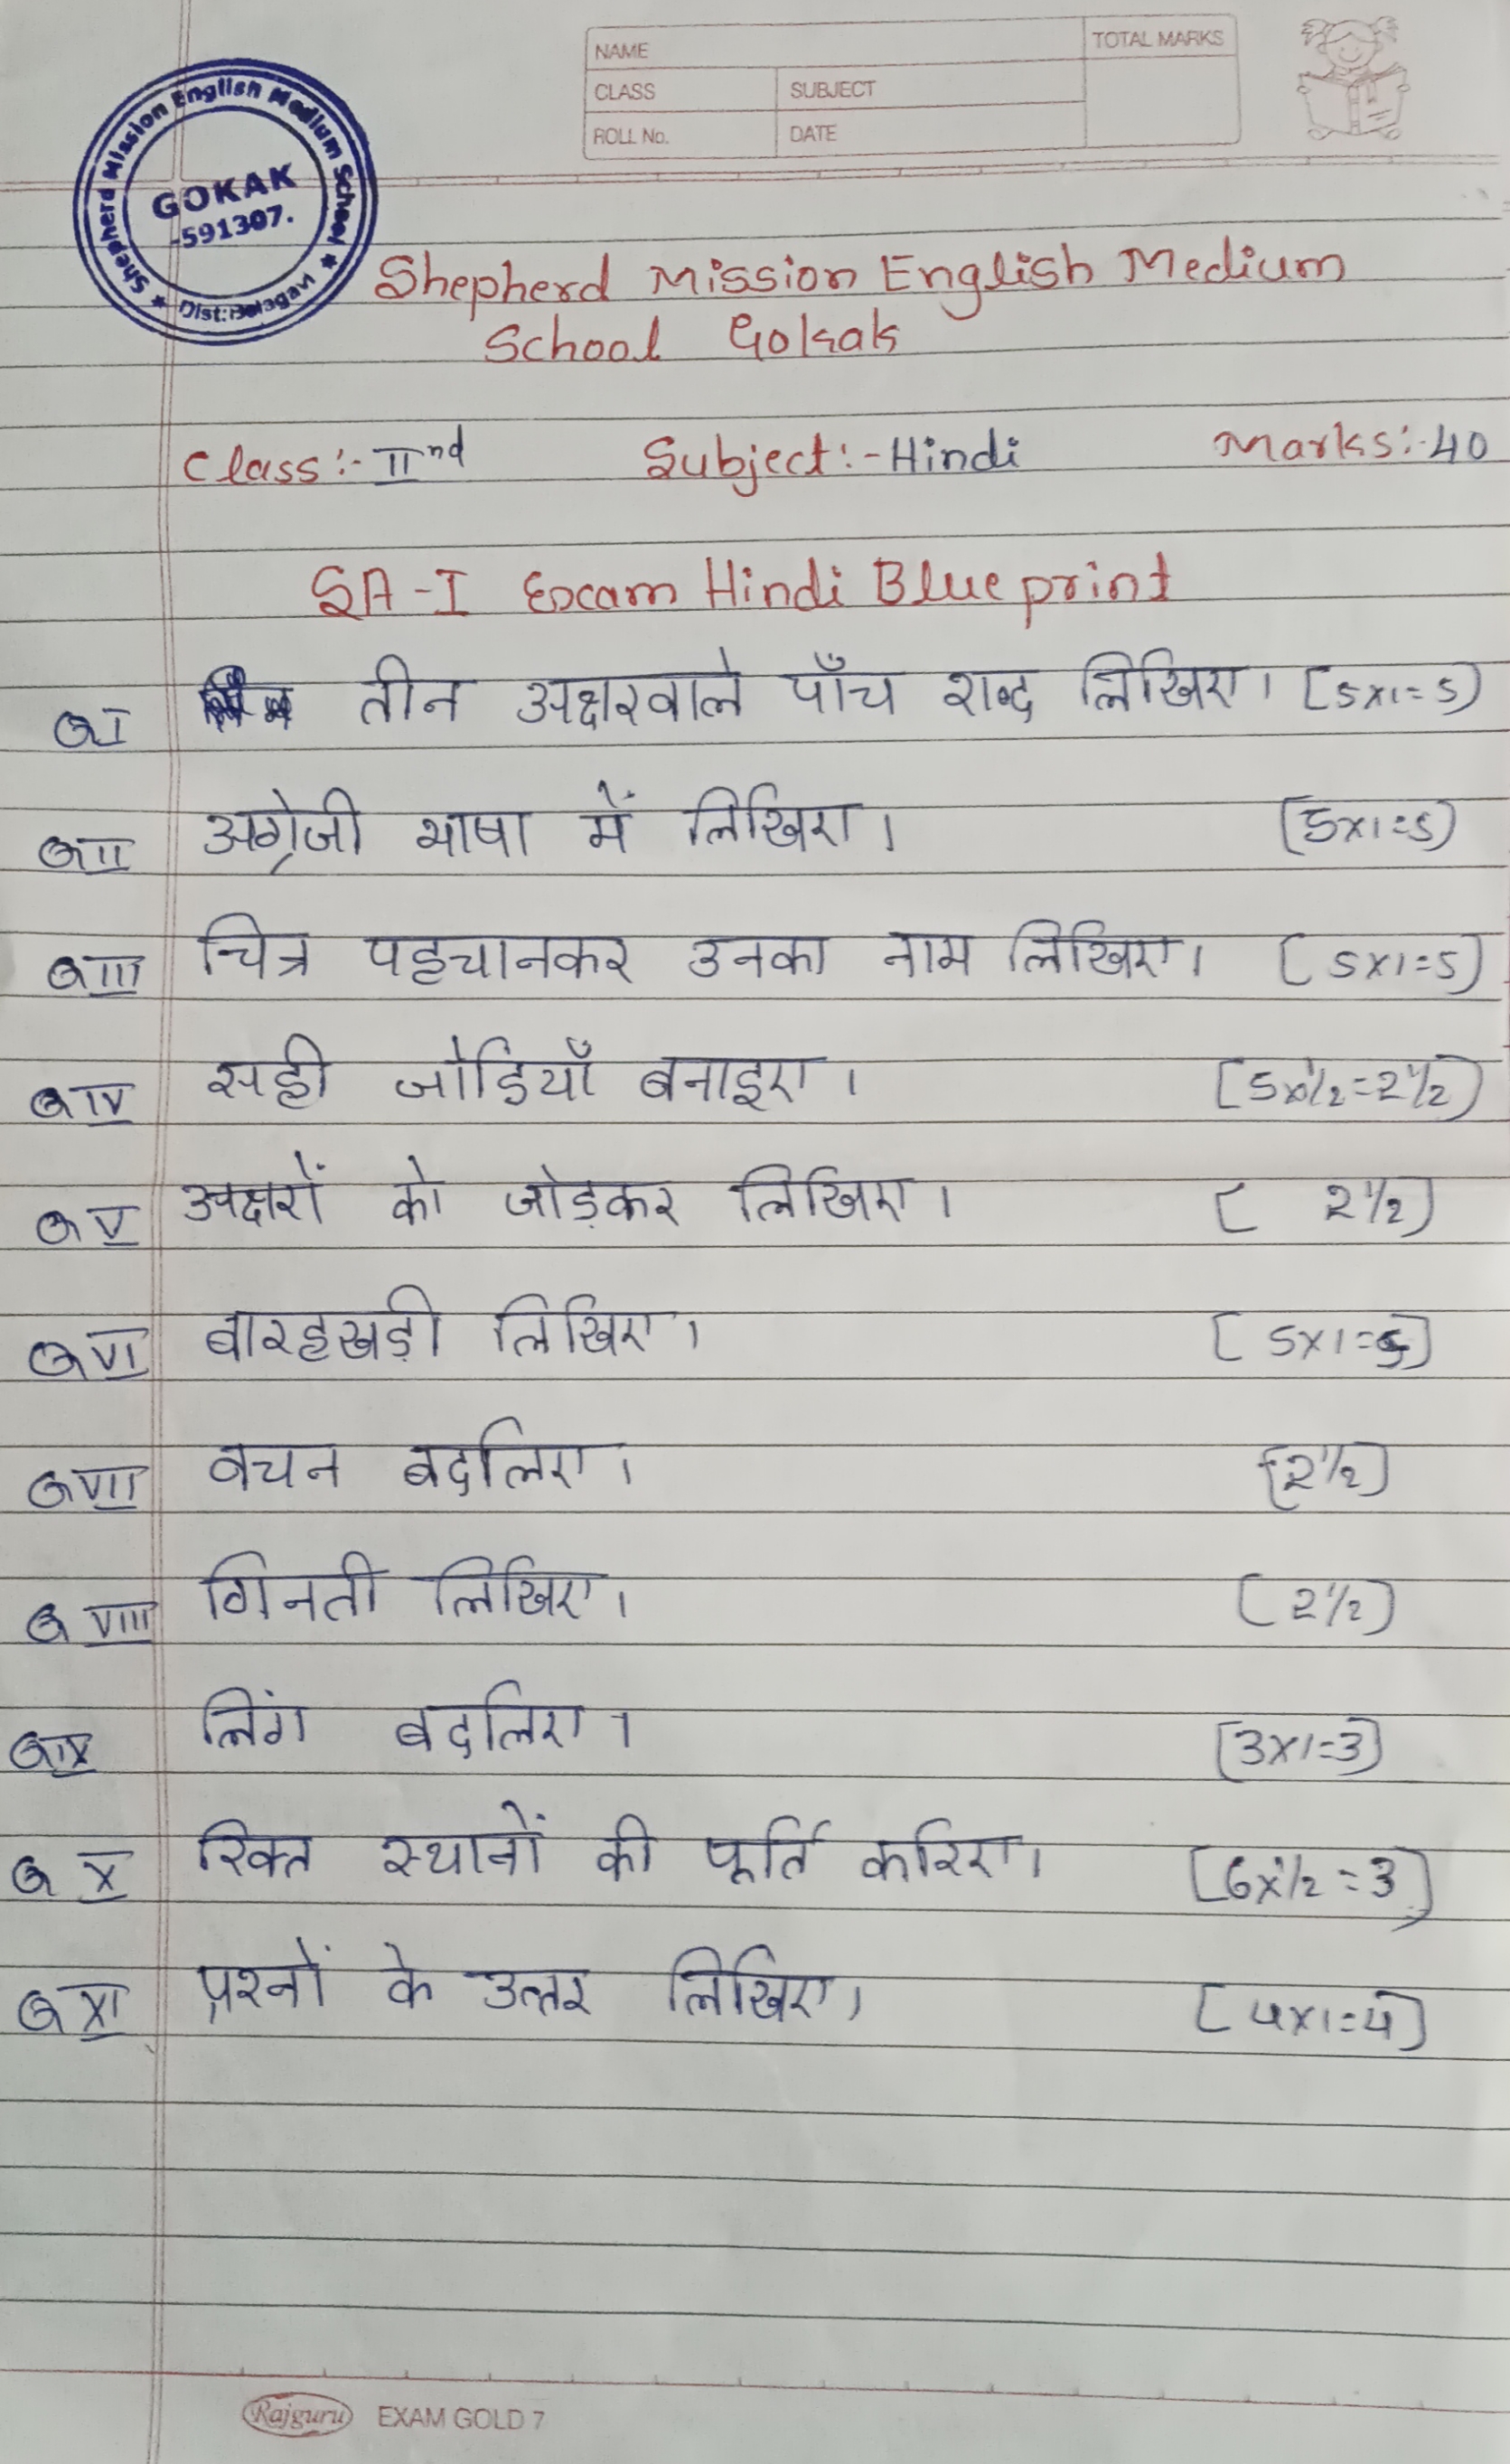 NAME
TOTAL MARKS
CLASS
SUBJECT
ROLL No.
DATE
Shepherd Mission English Medium School
GOKAK
-591307.
Dist:Belagavi
Shepherd Mission English Medium
School Gokak
Class :- IInd Subject :- Hindi Marks :- 40
SA-I Exam Hindi Blue print
Q I तीन अक्षरवाले पाँच शब्द लिखिए। [5x1=5]
Q II अग्रेजी भाषा में लिखिए। [5x1=5]
Q III चित्र पहचानकर उनका नाम लिखिए। [5x1=5]
Q IV सही जोड़ियाँ बनाइए। [5x1/2=2 1/2]
Q V अक्षरों को जोड़कर लिखिए। [ 2 1/2]
Q VI बारहखड़ी लिखिए। [5x1=5]
Q VII वचन बदलिए। [2 1/2]
Q VIII गिनती लिखिए। [2 1/2]
Q IX लिंग बदलिए। [3x1=3]
Q X रिक्त स्थानों की पूर्ति करिए। [6x1/2=3]
Q XI प्रश्नों के उत्तर लिखिए। [4x1=4]
Rajguru EXAM GOLD 7